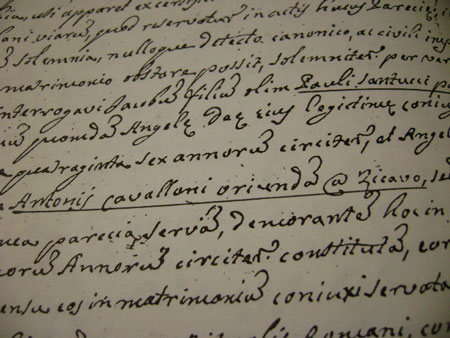 uti apparet ex certif
viarum, quod reservatur in actis huius Parecie, i
solemnia, nulloque detecto canonico, ac civili im
matrimonio obstare possit, solemniter per ver
interrogavi Jacobum filium olim Pauli Santucci
quondam Angele Dae eius legitime coniu
quadraginta sex annorum circiter, et Angel
Antonij Cavalloni oriunda @ Zicavo, se
parecia serva, demorante hoc in
Annorum circiter constituta, cor
ensu eos in matrimonium coniuxi servata
Romani, con